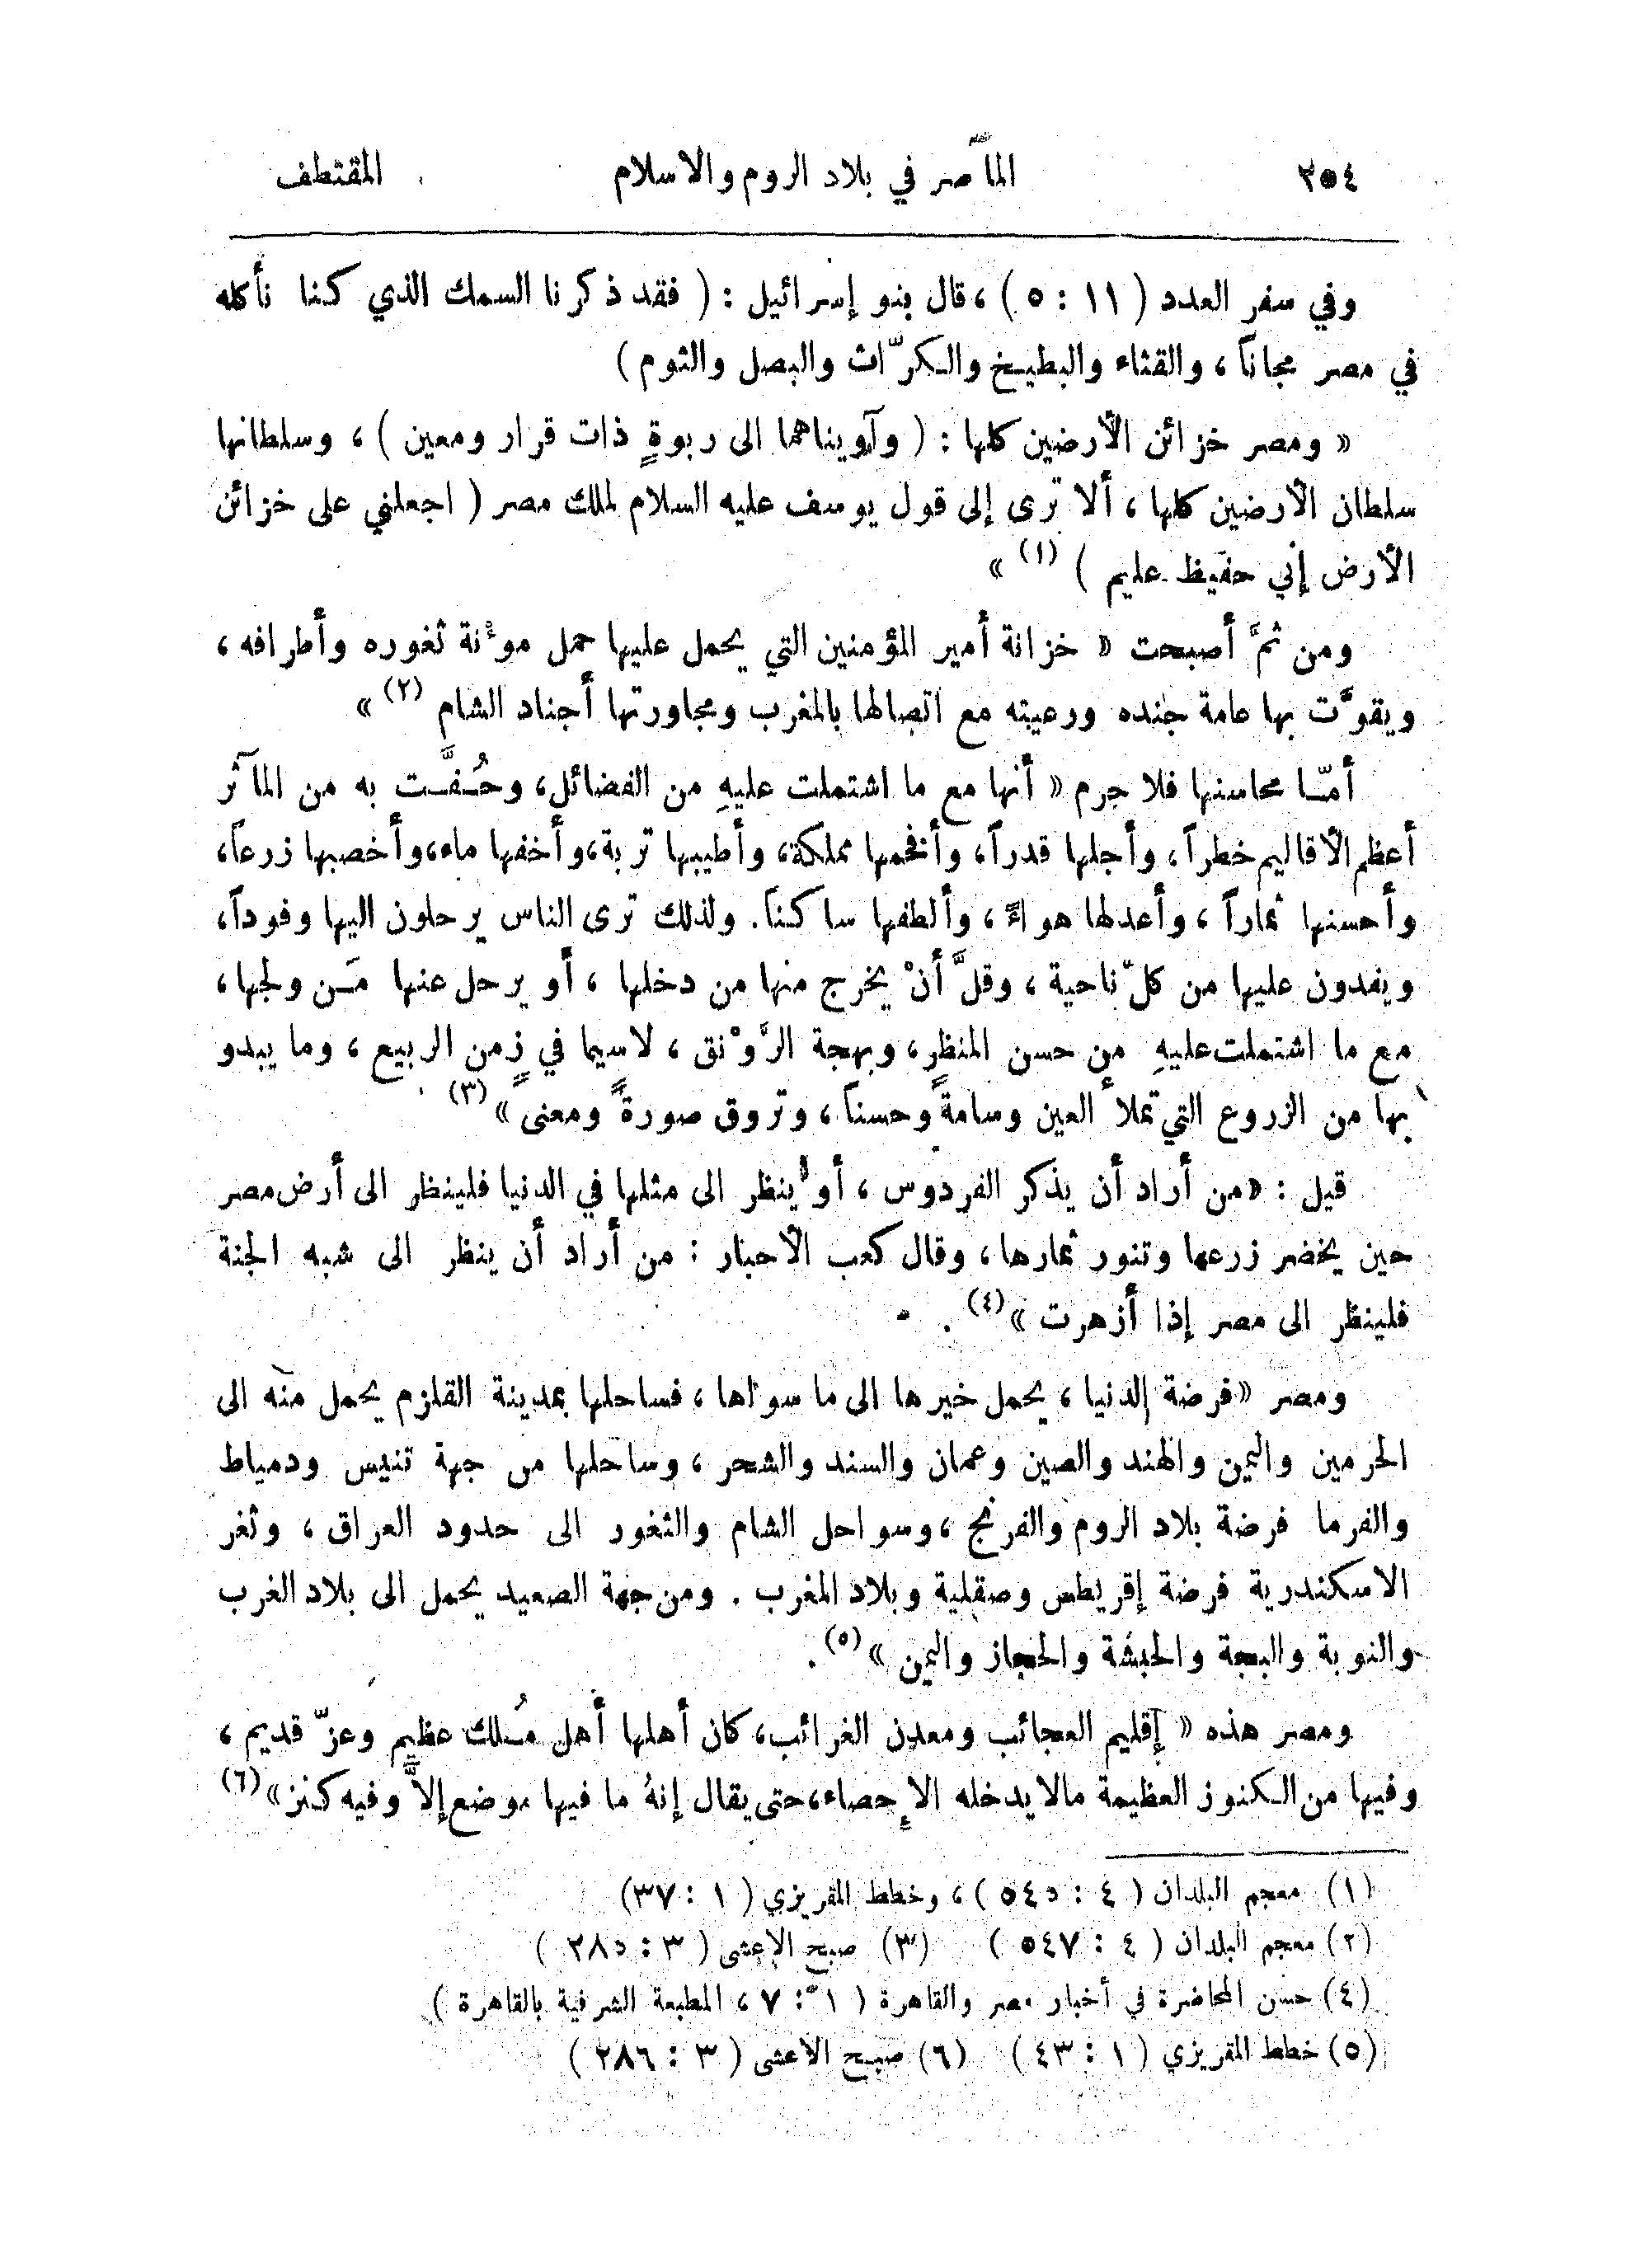 ٢٥٤ المآصر في بلاد الروم والاسلام المقتطف
وفي سفر العدد ( ١١ : ٥ ) ، قال بنو إسرائيل : ( فقد ذكرنا السمك الذي كنا نأكله
في مصر مجاناً ، والقثاء والبطيخ والكرّاث والبصل والثوم )
« ومصر خزائن الأرضين كلها : ( وآويناهما الى ربوةٍ ذات قرار ومعين ) ، وسلطانها
سلطان الأرضين كلها ، ألا ترى إلى قول يوسف عليه السلام لملك مصر ( اجعلني على خزائن
الأرض إني حفيظ عليم ) (١) »
ومن ثمَّ أصبحت « خزانة أمير المؤمنين التي يحمل عليها حمل موٴنة ثغوره وأطرافه ،
ويقوَّت بها عامة جنده ورعيته مع اتصالها بالمغرب ومجاورتها أجناد الشام (٢) »
أمّا محاسنها فلا جرم « أنها مع ما اشتملت عليهِ من الفضائل ، وحُفَّت به من المآثر
أعظم الأقاليم خطراً ، وأجلها قدراً ، وأفخمها مملكة ، وأطيبها تربة ، وأخفها ماء ، وأخصبها زرعاً ،
وأحسنها ثماراً ، وأعدلها هواءً ، وألطفها ساكناً . ولذلك ترى الناس يرحلون اليها وفوداً ،
ويفدون عليها من كلّ ناحية ، وقلَّ أنْ يخرج منها من دخلها ، أو يرحل عنها مَن ولجها ،
مع ما اشتملت عليهِ من حسن المنظر ، وبهجة الرَّوْنق ، لاسيما في زمن الربيع ، وما يبدو
بها من الزروع التي تملأ العين وسامةً وحسناً ، وتروق صورةً ومعنىً » (٣)
قيل : « من أراد أن يذكر الفردوس ، أو ينظر الى مثلها في الدنيا فلينظر الى أرض مصر
حين يخضر زرعها وتنور ثمارها ، وقال كعب الأحبار : من أراد أن ينظر الى شبه الجنة
فلينظر الى مصر إذا أزهرت » (٤) .
ومصر « فرضة الدنيا ، يحمل خيرها الى ما سواها ، فساحلها بمدينة القلزم يحمل منه الى
الحرمين واليمن والهند والصين وعمان والسند والشحر ، وساحلها من جهة تنيس ودمياط
والفرما فرضة بلاد الروم والفرنج ، وسواحل الشام والثغور الى حدود العراق ، وثغر
الاسكندرية فرضة إقريطس وصقلية وبلاد المغرب . ومن جهة الصعيد يحمل الى بلاد الغرب
والنوبة والبجة والحبشة والحجاز واليمن » (٥) .
ومصر هذه « إقليم العجائب ومعدن الغرائب ، كان أهلها أهل مُلك عظيم وعزّ قديم ،
وفيها من الكنوز العظيمة مالا يدخله الإحصاء ، حتى يقال إنهُ ما فيها موضع إلاَّ وفيه كنز » (٦)
(١) معجم البلدان ( ٤ : ٥٤٥ ) ، وخطط المقريزي ( ١ : ٣٧)
(٢) معجم البلدان ( ٤ : ٥٤٧ ) (٣) صبح الاعشى ( ٣ : ٢٨٥ )
(٤) حسن المحاضرة في أخبار مصر والقاهرة ( ١ : ٧ ، المطبعة الشرفية بالقاهرة )
(٥) خطط المقريزي ( ١ : ٤٣ ) (٦) صبح الاعشى ( ٣ : ٢٨٦ )